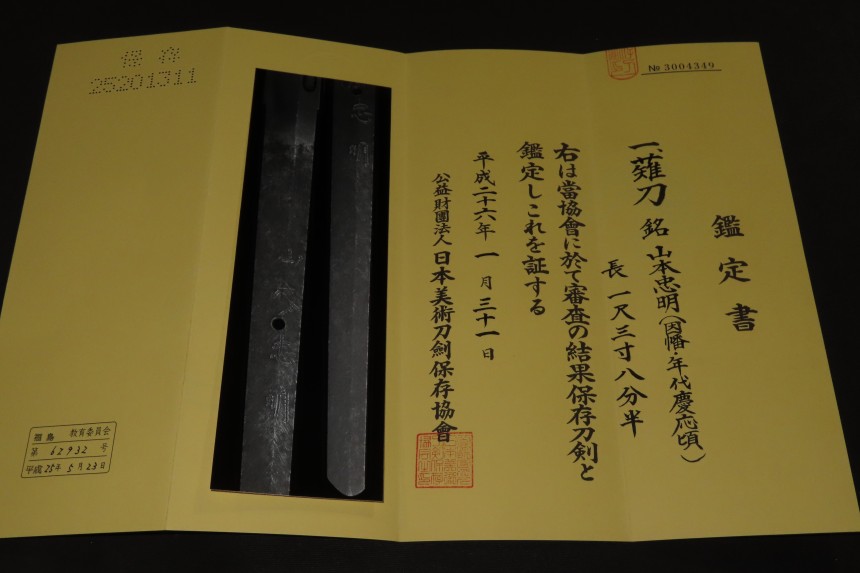 № 3004349
鑑定書
一、薙刀 銘 山本忠明(因幡・年代慶応頃)
長 一尺三寸八分半
右は當協會に於て審査の結果保存刀剣と
鑑定しこれを証する
平成二十六年一月三十一日
公益財團法人日本美術刀劍保存協會
忠明
忠明
保存
25201311
教育委員会
第 62932 号
平成 25年 5月 23日